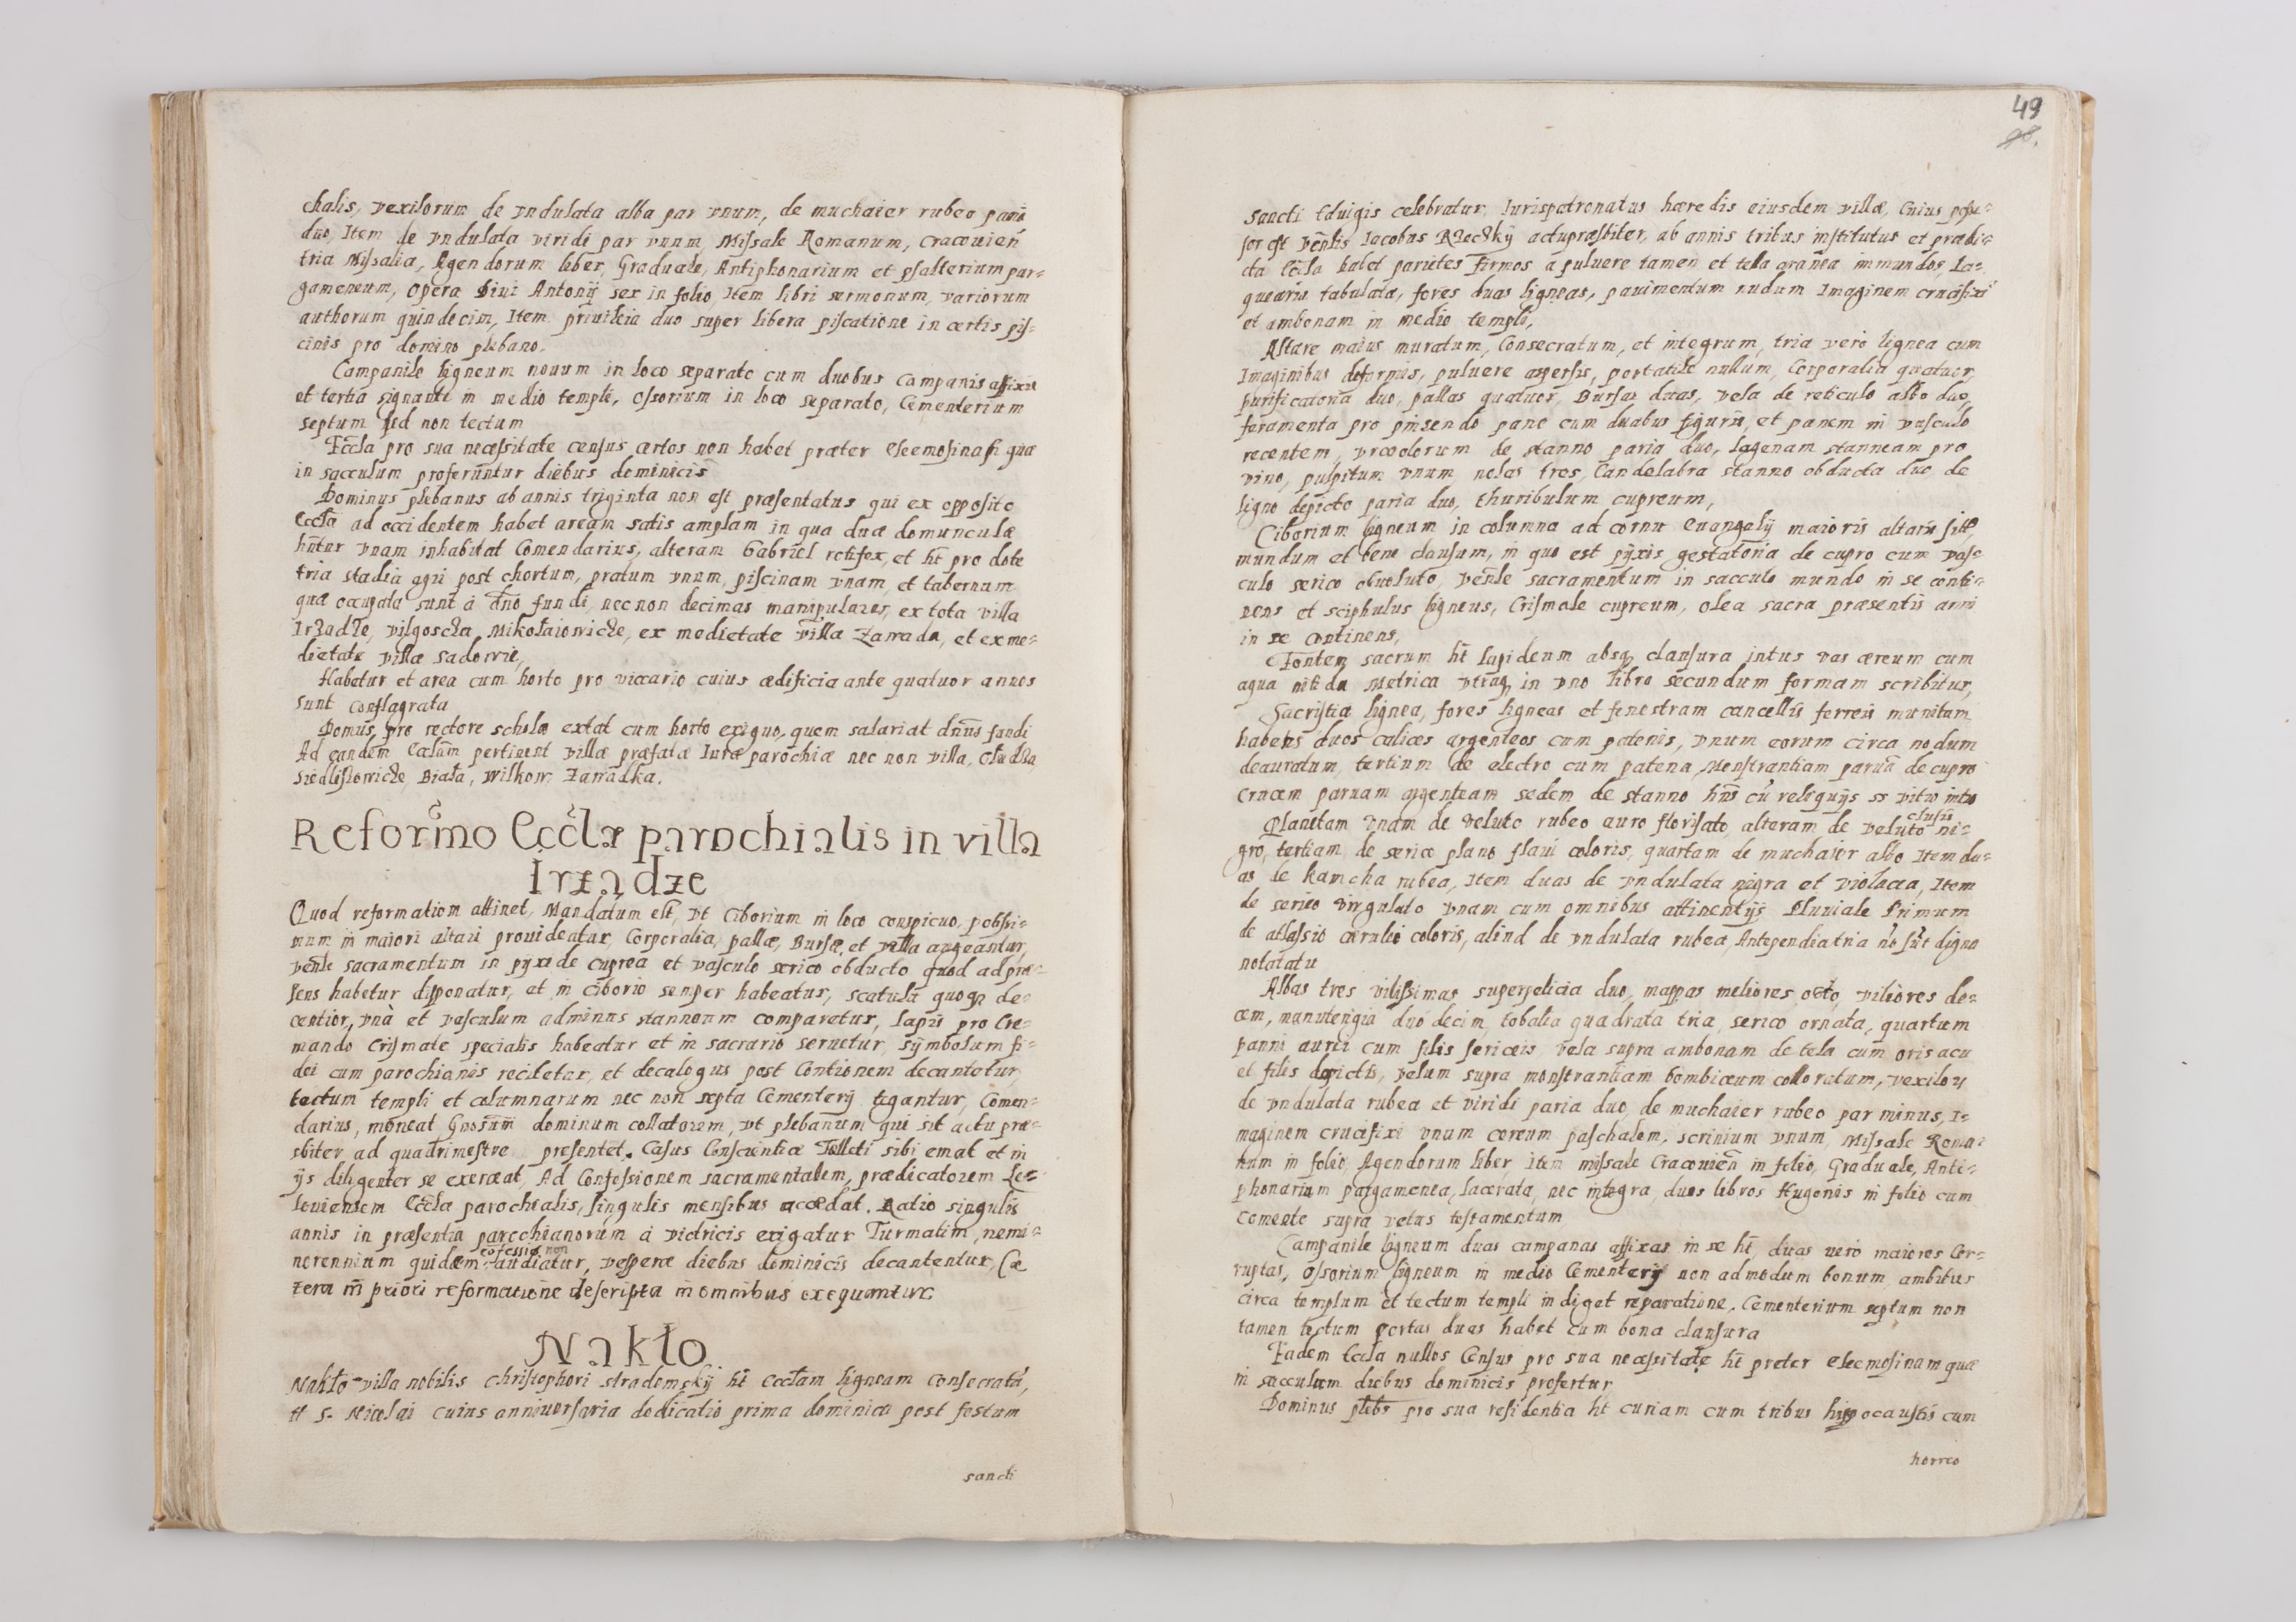 chalis, vexilorum de vndulata alba par vnum, de muchaier rubeo paria
duo, Item de vndulata viridi par vnum, Missale Romanum, Cracouien̄
tria Missalia, Agendorum liber, Graduale, Antiphonarium et psalterium par-
gameneum, Opera Diui Antonij sex in folio Item libri sermonum, variorum
authorum quindecim, Item priuileia duo super libera piscatione in certis pis-
cinis pro domino plebano.
Campanile ligneum nouum in loco separato cum duobus Campanis affixis
et tertia signanti in medio templi, Ossorium in loco separato, Cementerium
septum sed non tectum
Eccła pro sua necessitate census certos non habet præter Eleemosina si quæ
in sacculum proferuntur diebus dominicis
Dominus plebanus ab annis triginta non est præsentatus qui ex opposito
Eccłæ ad occidentem habet aream satis amplam in qua duæ domunculæ
hn̄tur vnam inhabitat Comendarius, alteram Gabriel rotifex, et ht̄ pro dote
tria stadia agri post chortum, pratum vnum, piscinam vnam, et tabernam
quæ occupata sunt à dn̄o fundi, nec non decimas manipulares, ex tota villa
Irządze, Vilgoscza, Mikołaiowicze, ex medietate villæ Zawada, et ex me-
dietate villæ Sadowie,
Habetur et area cum horto pro viccario cuius ædificia ante quatuor annos
sunt conflagrata
Domus, pro rectore scholæ extat cum horto exiguo, quem salariat dn̄us fundi
Ad eandem Ecclam pertinent villæ præfatæ Iuræ parochiæ nec non villa,
Siedliskowicze, Biała, Wilkow Zawadka.
Reformo Eccłæ parochialis in villa
Irządze
Quod reformatiom attinet, Mandatum est, Vt Ciborium in loco conspicuo, possi-
mum in maiori altari prouideatur, Corporalia, pallæ, Bursæ, et vella augeantur,
Ven̄le sacramentum in pyxide cuprea et vasculo serico obducto quod ad præ-
sens habetur disponatur, et in ciborio semper habeatur, scatula quoqz de-
centior, vnà et vasculum adminus stanneum comparetur, lapis pro Cre-
mando Crismate specialis habeatur et in sacrario seruetur, Symbolum fi-
dei cum parochianis recitetur, et decalogus post Contionem decantetur,
tectum templi et columnarum nec non septa Cementerij tegantur, Comen-
darius, moneat Gnosum dominum collatorem, vt plebanum qui sit actu præ-
sbiter ad quadrimestre presentet. Casus Conscientiæ Tolleti sibi emat et in
ijs diligenter se exerceat, Ad Confessionem sacramentalem, prædicatorem Le-
louiensem Eccła parochialis, singulis mensibus accedat. Ratio singulis
annis in præsentia parochianorum à victricis exigatur Turmatim, nemi-
nerennium quidem cofessio non audiatur, vesperæ diebus dominicis decantentur, Cæ
tera in priori reformatione descripta in omnibus exequantur.
Nakło
Nakło villa nobilis Christophori stradomskij ht̄ Ecclam ligneam Consecratā,
tt S. Nicolai cuius anniuersaria dedicatio prima dominica post festum
sancti
49
98.
Sancti Eduigis celebratur, Iurispatronatus hæredis eiusdem villæ, Cuius posse-
sor est ven̄lis Iacobus Rzeczkij actu præsbiter, ab annis tribus institutus et prædi-
cta Eccła habet parietes firmos à puluere tamen et tella aranea immundos, La-
quearia tabulata, fores duas ligneas, pauimentum nudum Imaginem crucifixi
et ambonam in medio templi,
Altare maius muratum, Consecratum, et integrum, tria vero lignea cum
Imaginibus deformis, puluere aspersis, portatile nullum, Corporalia quatuor,
purificatoria duo, pallas quatuor, Bursas duas, vela de reticulo albo duo,
feramenta pro pinsendo pane cum duabus figuris, et panem in vasculo
recentem, vrceolorum de stanno paria duo, lagenam stanneam pro
vino, pulpitum vnum nolas tres, Candelabra stanno obducta duo de
ligno depicto paria duo, thuribulum cupreum,
Ciborium ligneum in columna ad cornu Euangelij maioris altaris sitū,
mundum et bene clausum, in quo est pyxis gestatoria de cupro cum vas-
culo serico obuoluto, Ven̄le sacramentum in sacculo mundo in se conti-
nens et sciphulus ligneus, Crismale cupreum, olea sacra præsentis anni
in se continens,
Fontem sacrum ht̄ lapideum absqz clausura intus vas æreum cum
aqua nitida Metrica vtraqz in vno libro secundum formam scribitur,
Sacristia lignea, fores ligneas et fenestram cancellis ferreis munitam
habens duos calices argenteos cum patenis, vnum eorum circa nodum
deauratum, tertium de electro cum patena, Monstrantiam paruā de cupro
Crucem paruam argenteam sedem de stanno hn̄s cū reliquijs ss vitro intro
clusis
Planetam vnam de veluto rubeo auro florisato, alteram de veluto ni-
gro, tertiam de serico plano flaui coloris, quartam de muchaier albo Item du-
as de Kamcha rubea, Item duas de vndulata nigra et violacea, Item
de serico virgulato vnam cum omnibus attinentijs Pluuiale Primum
de atlassio cærulei coloris, aliud de vndulata rubea, Antependia tria nō sūt digna
notatatu
Albas tres vilissimas superpelicia duo, mappas meliores octo, viliores de-
cem, manutergia duodecim, tobalia quadrata tria, serico ornata, quartum
panni aurei cum filis sericeis, vela supra ambonam de tela cum oris acu
et filis depictis, velum supra monstrantiam bombiceum colloratum, vexilorz
de vndulata rubea et viridi paria duo, de muchaier rubeo par minus, I-
maginem crucifixi vnum cereum paschalem, scrinium vnum, Missale Roma-
num in folio, Agendorum liber Item missale Cracouien̄ in folio, Graduale, Anti-
phonarium pargamenea, lacerata, nec integra, duos libros Hugonis in folio cum
Comento supra vetus testamentum
Campanile ligneum duas campanas affixas in se ht̄, duas vero maiores Cor-
ruptas, Ossorium ligneum in medio Cementerij non admodum bonum, ambitus
circa templum et tectum templi indiget reparatione, Cementerium septum non
tamen tectum portas duas habet cum bona clausura
Eadem Eccła nullos Census pro sua necessitate ht̄ preter eleemosinam quæ
in sacculum diebus dominicis profertur
Dominus plebs pro sua residentia ht̄ curiam cum tribus hippocaustis cum
horreo